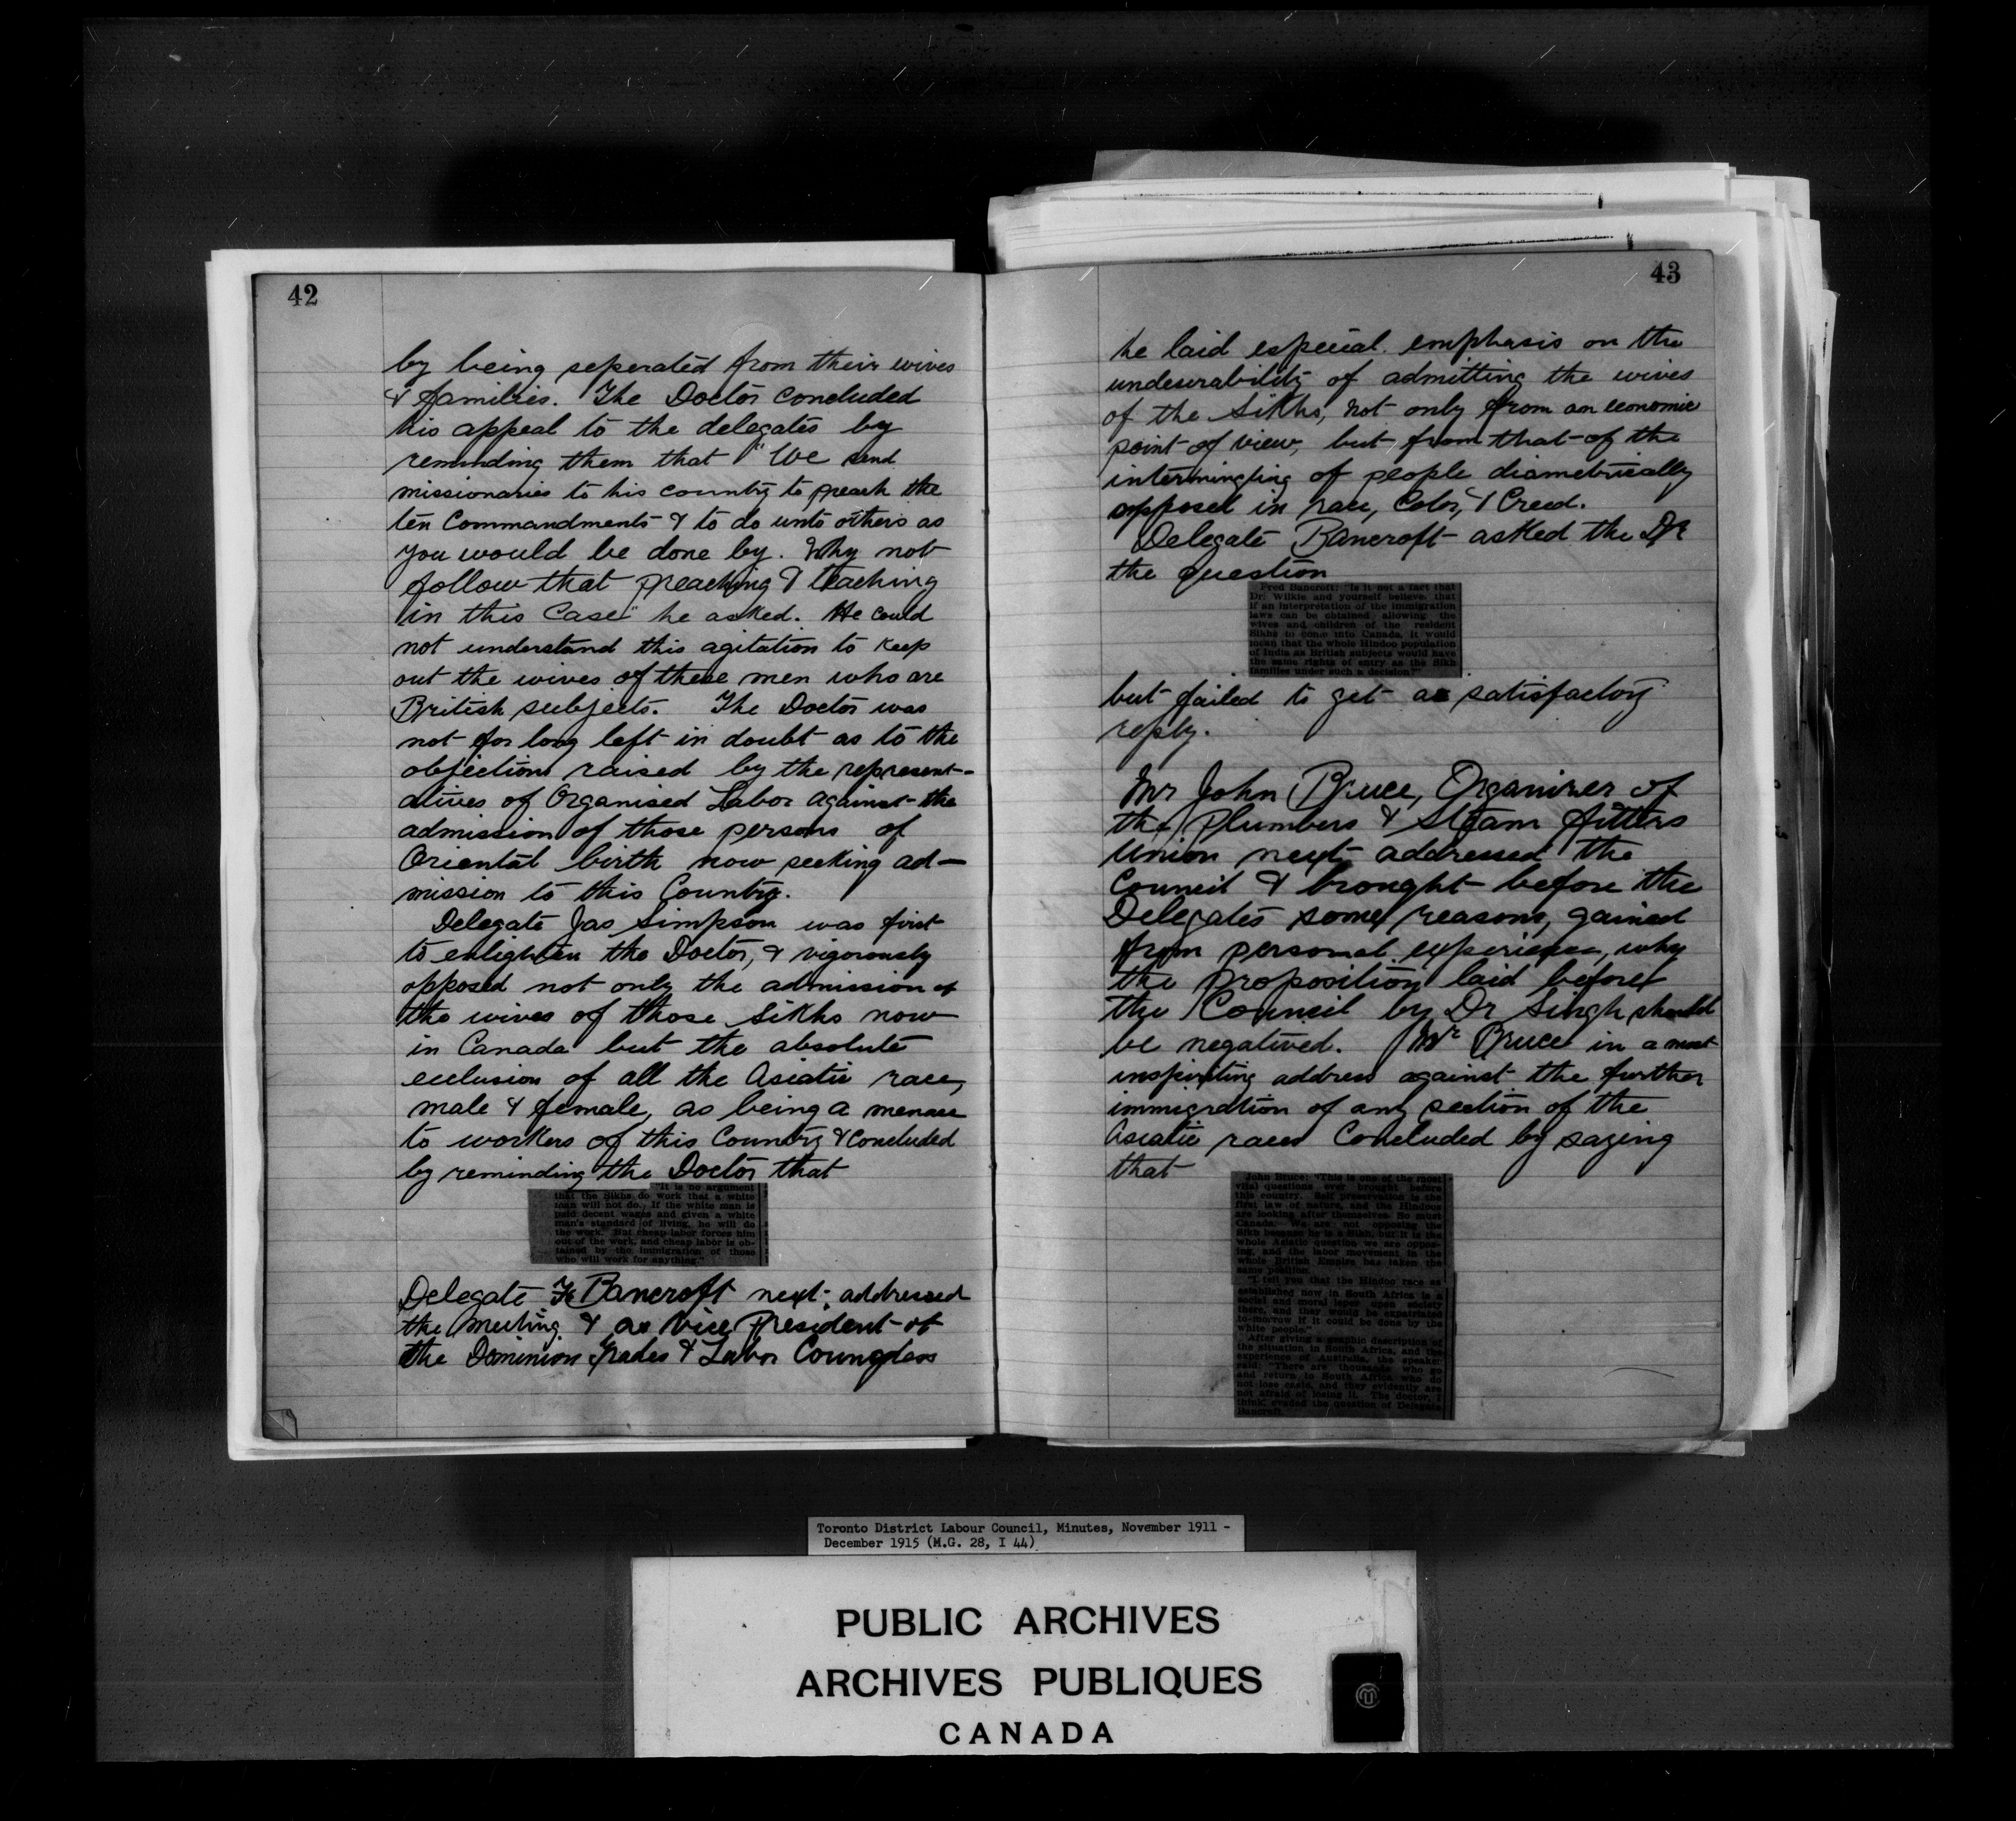 42
by being seperated from their wives
& families. The Doctor concluded
his appeal to the delegates by
reminding them that "We send
missionaries to his country to preach the
ten Commandments & to do unto others as
you would be done by. Why not
follow that preaching & teaching
in this Case" he asked. He could
not understand this agitation to keep
out the wives of these men who are
British subjects. The Doctor was
not for long left in doubt as to the
objections raised by the represent-
atives of Organised Labor against the
admission of those persons of
Oriental birth now seeking ad-
mission to this Country.
Delegate Jas Simpson was first
to enlighten the Doctor, & vigorously
opposed not only the admission of
the wives of those Sikhs now
in Canada but the absolute
exclusion of all the Asiatic race,
male & female, as being a menace
to workers of this Country & concluded
by reminding the Doctor that
"It is no argument
that the Sikhs do work that a white
man will not do. If the white man is
paid decent wages and given a white
man's standard of living, he will do
the work. But cheap labor forces him
out of the work, and cheap labor is ob-
tained by the immigration of those
who will work for anything."
Delegate F Bancroft next addressed
the meeting & as Vice President of
the Dominion Trades & Labor Congress
43
he laid especial emphasis on the
undesirability of admitting the wives
of the Sikhs, not only from an economic
point of view, but from that of the
intermingling of people diametrically
opposed in race, Color, & Creed.
Delegate Bancroft asked the Dr
the question
Fred Bancroft: "Is it not a fact that
Dr. Wilkie and yourself believe that
if an interpretation of the immigration
laws can be obtained allowing the
wives and children of the resident
Sikhs to come into Canada, it would
mean that the whole Hindoo population
of India as British subjects would have
the same rights of entry as the Sikh
families under such a decision?"
but failed to get a satisfactory
reply.
Mr John Bruce, Organizer of
the Plumbers & Steam fitters
Union next addressed the
Council & brought before the
Delegates some reasons, gained
from personal experience, why
the proposition laid before
the Council by Dr Singh should
be negatived. Mr Bruce in a most
inspiriting address against the further
immigration of any section of the
Asiatic races Concluded by saying
that
John Bruce: "This is one of the most
vital questions ever brought before
this country. Self preservation is the
first law of nature, and the Hindoos
are looking after themselves. So must
Canada. We are not opposing the
Sikh because he is a Sikh, but it is the
whole Asiatic question we are oppos-
ing, and the labor movement in the
whole British Empire has taken the
same position.
"I tell you that the Hindoo race as
established now in South Africa is a
social and moral leper upon society
there, and they would be expatriated
to-morrow if it could be done by the
white people."
After giving a graphic description of
the situation in South Africa, and the
experience of Australia, the speaker
said: "There are thousands who go
and return to South Africa who do
not lose caste, and they evidently are
not afraid of losing it. The doctor, I
think, evaded the question of Delegate
Bancroft.
Toronto District Labour Council, Minutes, November 1911 -
December 1915 (M.G. 28, I 44)
PUBLIC ARCHIVES
ARCHIVES PUBLIQUES
CANADA